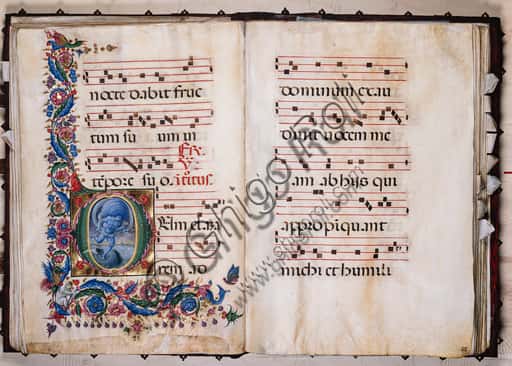 nocte dabit fruc
tum su um in
tēpore suo.
Um clama
rem ao
dominum exau
diuit uocem me
am ab his qui
appropiquant
michi et humili
© Ghigo Roli
www.ghigoroli.com